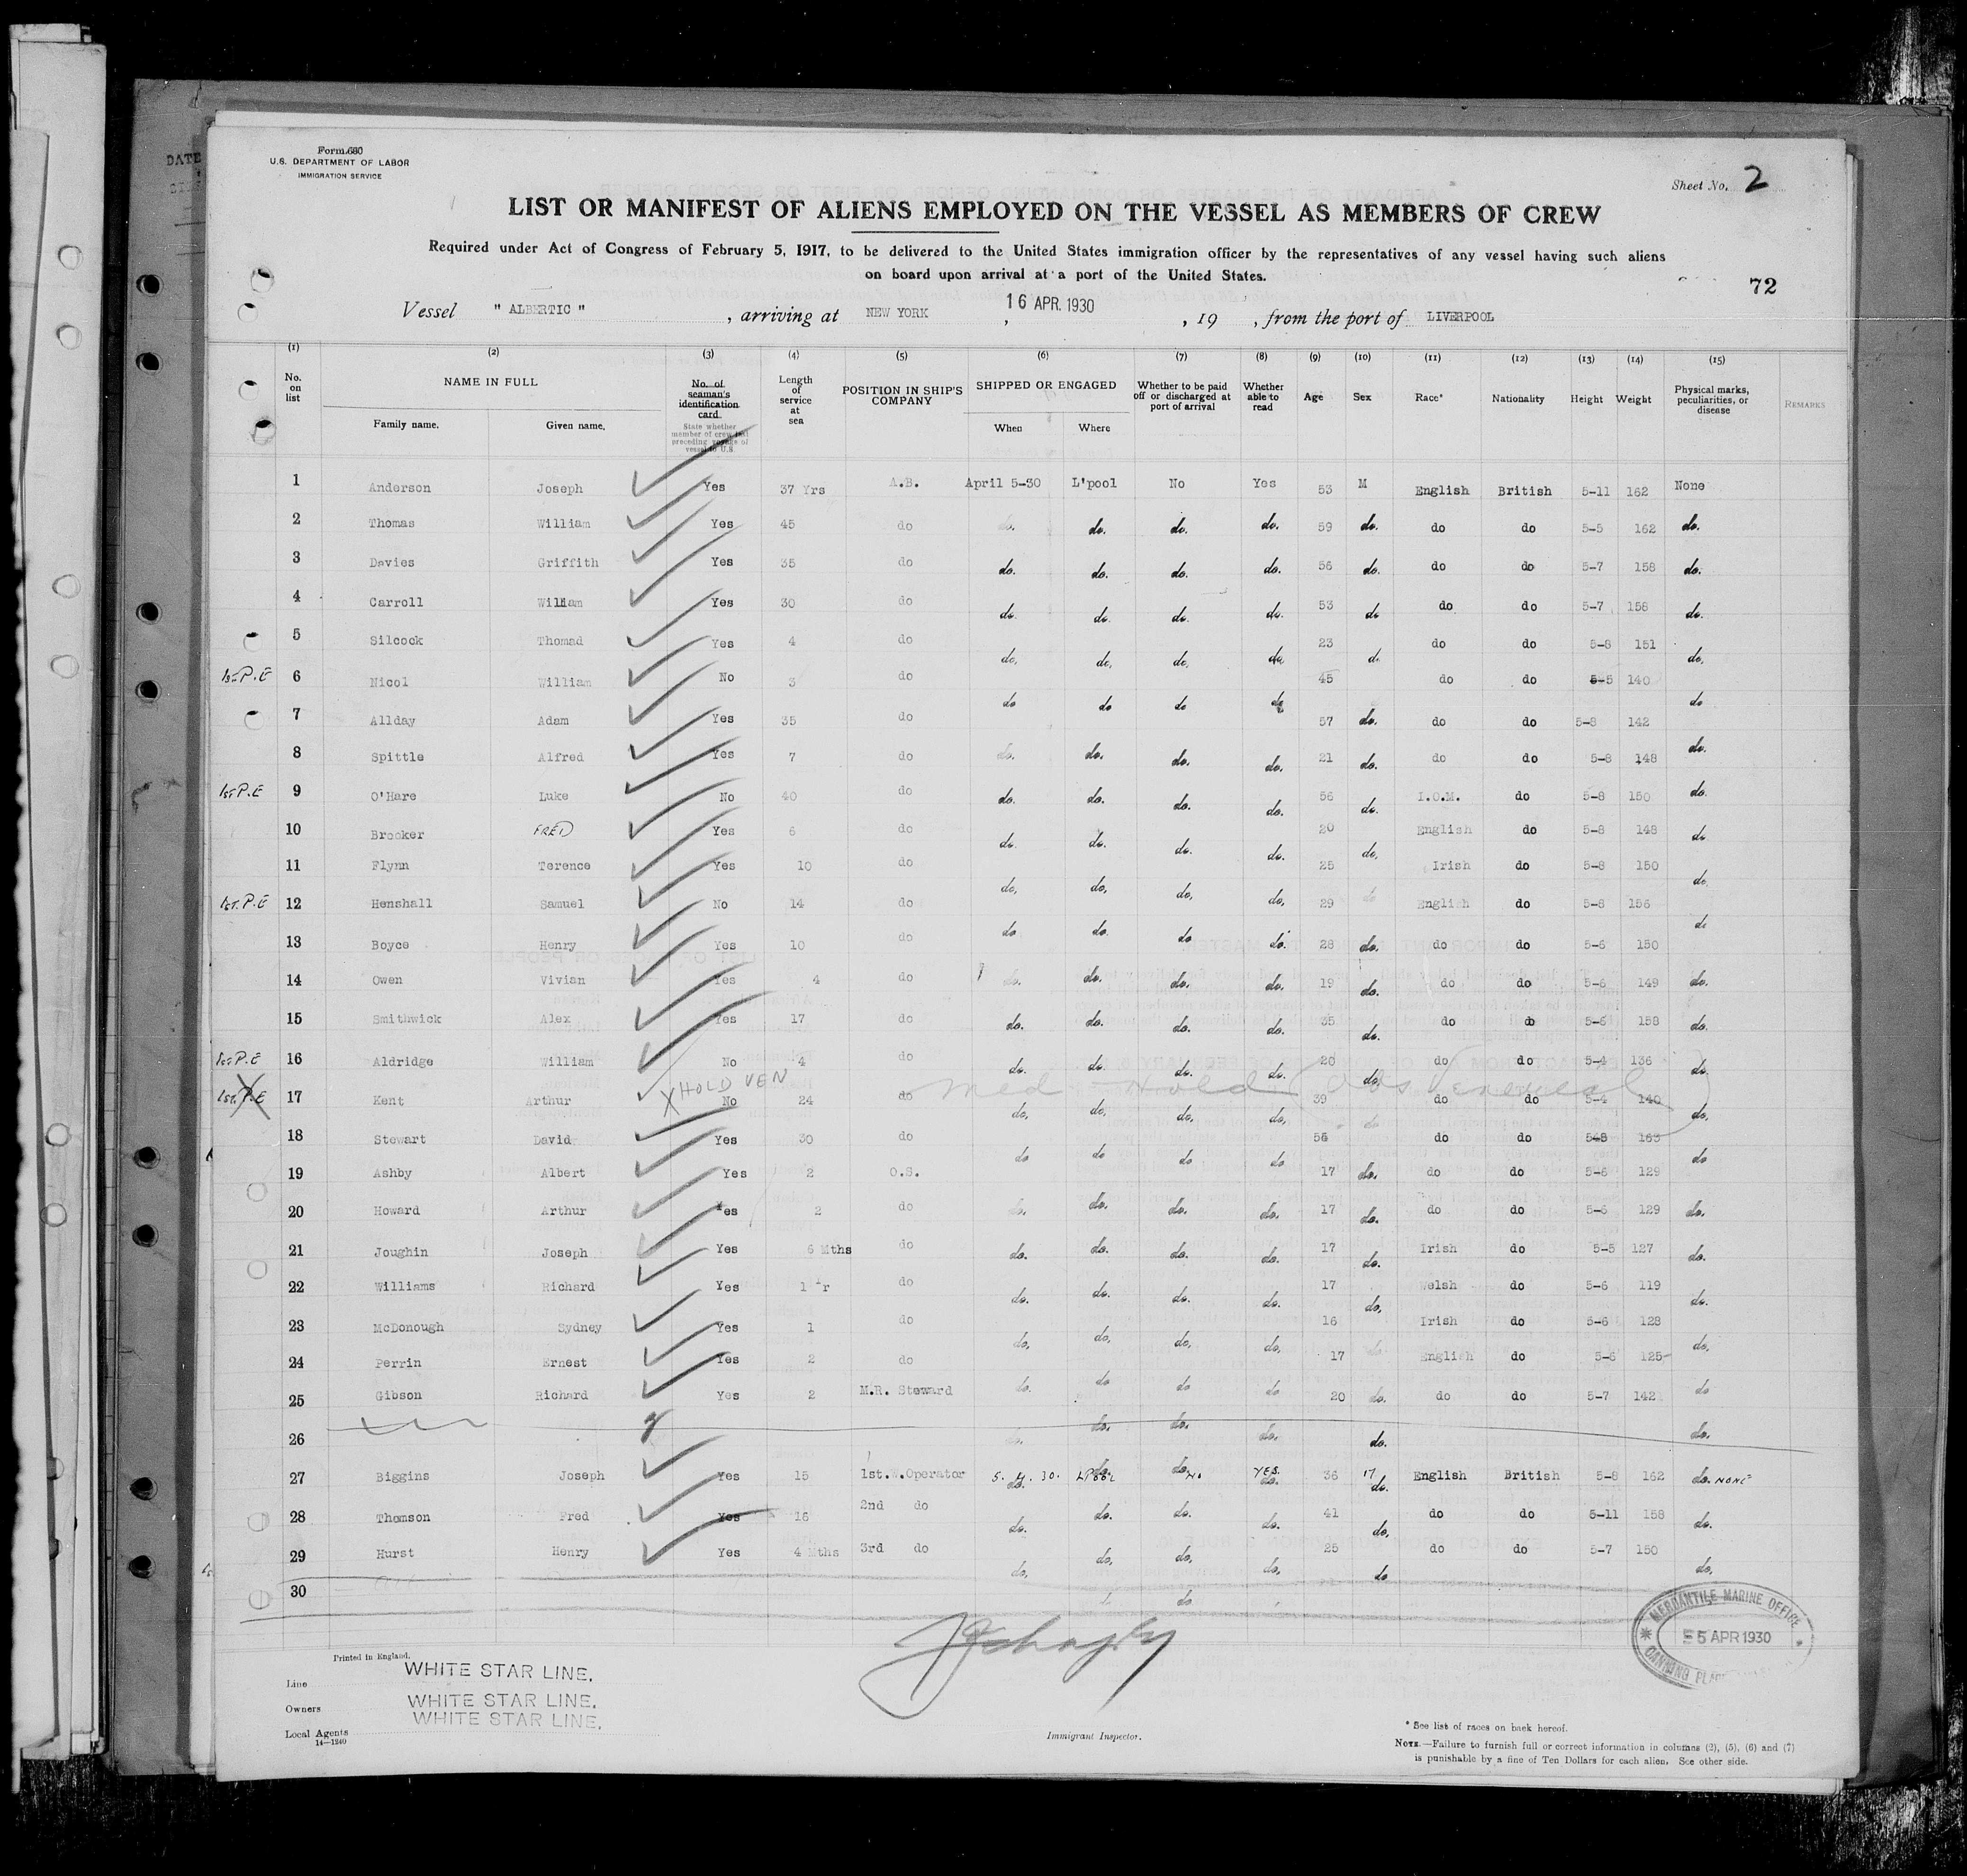 Form 680
U.S. DEPARTMENT OF LABOR
IMMIGRATION SERVICE
DATE
Sheet No. 2
LIST OR MANIFEST OF ALIENS EMPLOYED ON THE VESSEL AS MEMBERS OF CREW
Required under Act of Congress of February 5, 1917, to be delivered to the United States immigration officer by the representatives of any vessel having such aliens
on board upon arrival at a port of the United States.
72
Vessel " ALBERTIC " , arriving at NEW YORK , 16 APR. 1930 , 19 , from the port of LIVERPOOL
(1) (2) (3) (4) (5) (6) (7) (8) (9) (10) (11) (12) (13) (14) (15)
No. on list NAME IN FULL Family name. Given name. No. of seaman's identification card. State whether member of crew last preceding voyage of vessel to U.S. Length of service at sea POSITION IN SHIP'S COMPANY SHIPPED OR ENGAGED When Where Whether to be paid off or discharged at port of arrival Whether able to read Age Sex Race* Nationality Height Weight Physical marks, peculiarities, or disease REMARKS
1 Anderson Joseph Yes 37 Yrs A.B. April 5-30 L'pool No Yes 53 M English British 5-11 162 None
2 Thomas William Yes 45 do do. do. do. do. 59 do. do do 5-5 162 do.
3 Davies Griffith Yes 35 do do. do. do. do. 56 do. do do 5-7 158 do.
4 Carroll William Yes 30 do do. do. do. do. 53 do do do 5-7 158 do.
5 Silcock Thomad Yes 4 do do. do. do. do. 23 do. do do 5-8 151 do.
1st P.E 6 Nicol William No 3 do do do do do 45 do do 5-5 140 do
7 Allday Adam Yes 35 do 57 do. do do 5-8 142
8 Spittle Alfred Yes 7 do do. do. do. do. 21 do. do do 5-8 148 do.
1st P.E 9 O'Hare Luke No 40 do do. do. do. do. 56 do. I.O.M. do 5-8 150 do.
10 Brooker FRED Yes 6 do do. do. do. do. 20 do. English do 5-8 148 do
11 Flynn Terence Yes 10 do do. do. do. do. 25 Irish do 5-8 150 do.
1st. P.E 12 Henshall Samuel No 14 do do do. do do. 29 do English do 5-8 156 do
13 Boyce Henry Yes 10 do 28 do. do do 5-6 150
14 Owen Vivian Yes 4 do do. do. do. do. 19 do. do do 5-6 149 do.
15 Smithwick Alex Yes 17 do do. do. do. do. 35 do. do do 5-6 158 do.
1st P.E 16 Aldridge William No 4 do do. do. do. do. 20 do. do do 5-4 136 do.
1st. P.E 17 Kent Arthur X HOLD VEN No 24 do do. do. do. do. 39 do do do 5-4 140 do.
Med Hold (Obs Venereal)
18 Stewart David Yes 30 do do do do do do do 5-8 163 do
19 Ashby Albert Yes 2 O.S. 17 do. do do 5-6 129
20 Howard Arthur Yes 2 do do. do. do. do. 17 do. do do 5-6 129 do.
21 Joughin Joseph Yes 6 Mths do do. do. do. do. 17 do. Irish do 5-5 127 do.
22 Williams Richard Yes 1 Yr do do. do. do. do. 17 do. Welsh do 5-6 119 do.
23 McDonough Sydney Yes 1 do do. do. do. do. 16 Irish do 5-6 128 do.
24 Perrin Ernest Yes 2 do do. do do do 17 do English do 5-6 125 do
25 Gibson Richard Yes 2 M.R. Steward 20 do. do do 5-7 142
26 do. do. do. do. do. do.
27 Biggins Joseph Yes 15 1st.W.Operator 5. 4. 30. L'POOL do. No YES do. 36 M do. English British 5-8 162 do. NONE
28 Thomson Fred Yes 16 2nd do do. do. do. do. 41 do. do do 5-11 158 do.
29 Hurst Henry Yes 4 Mths 3rd do do. do. do. do. 25 do do do 5-7 150 do.
30 do
MERCANTILE MARINE OFFICE
5 APR 1930
CANNING PLACE
Printed in England.
Line WHITE STAR LINE.
Owners WHITE STAR LINE.
Local Agents WHITE STAR LINE.
14—1240
Immigrant Inspector.
* See list of races on back hereof.
NOTE.—Failure to furnish full or correct information in columns (2), (5), (6) and (7)
is punishable by a fine of Ten Dollars for each alien. See other side.